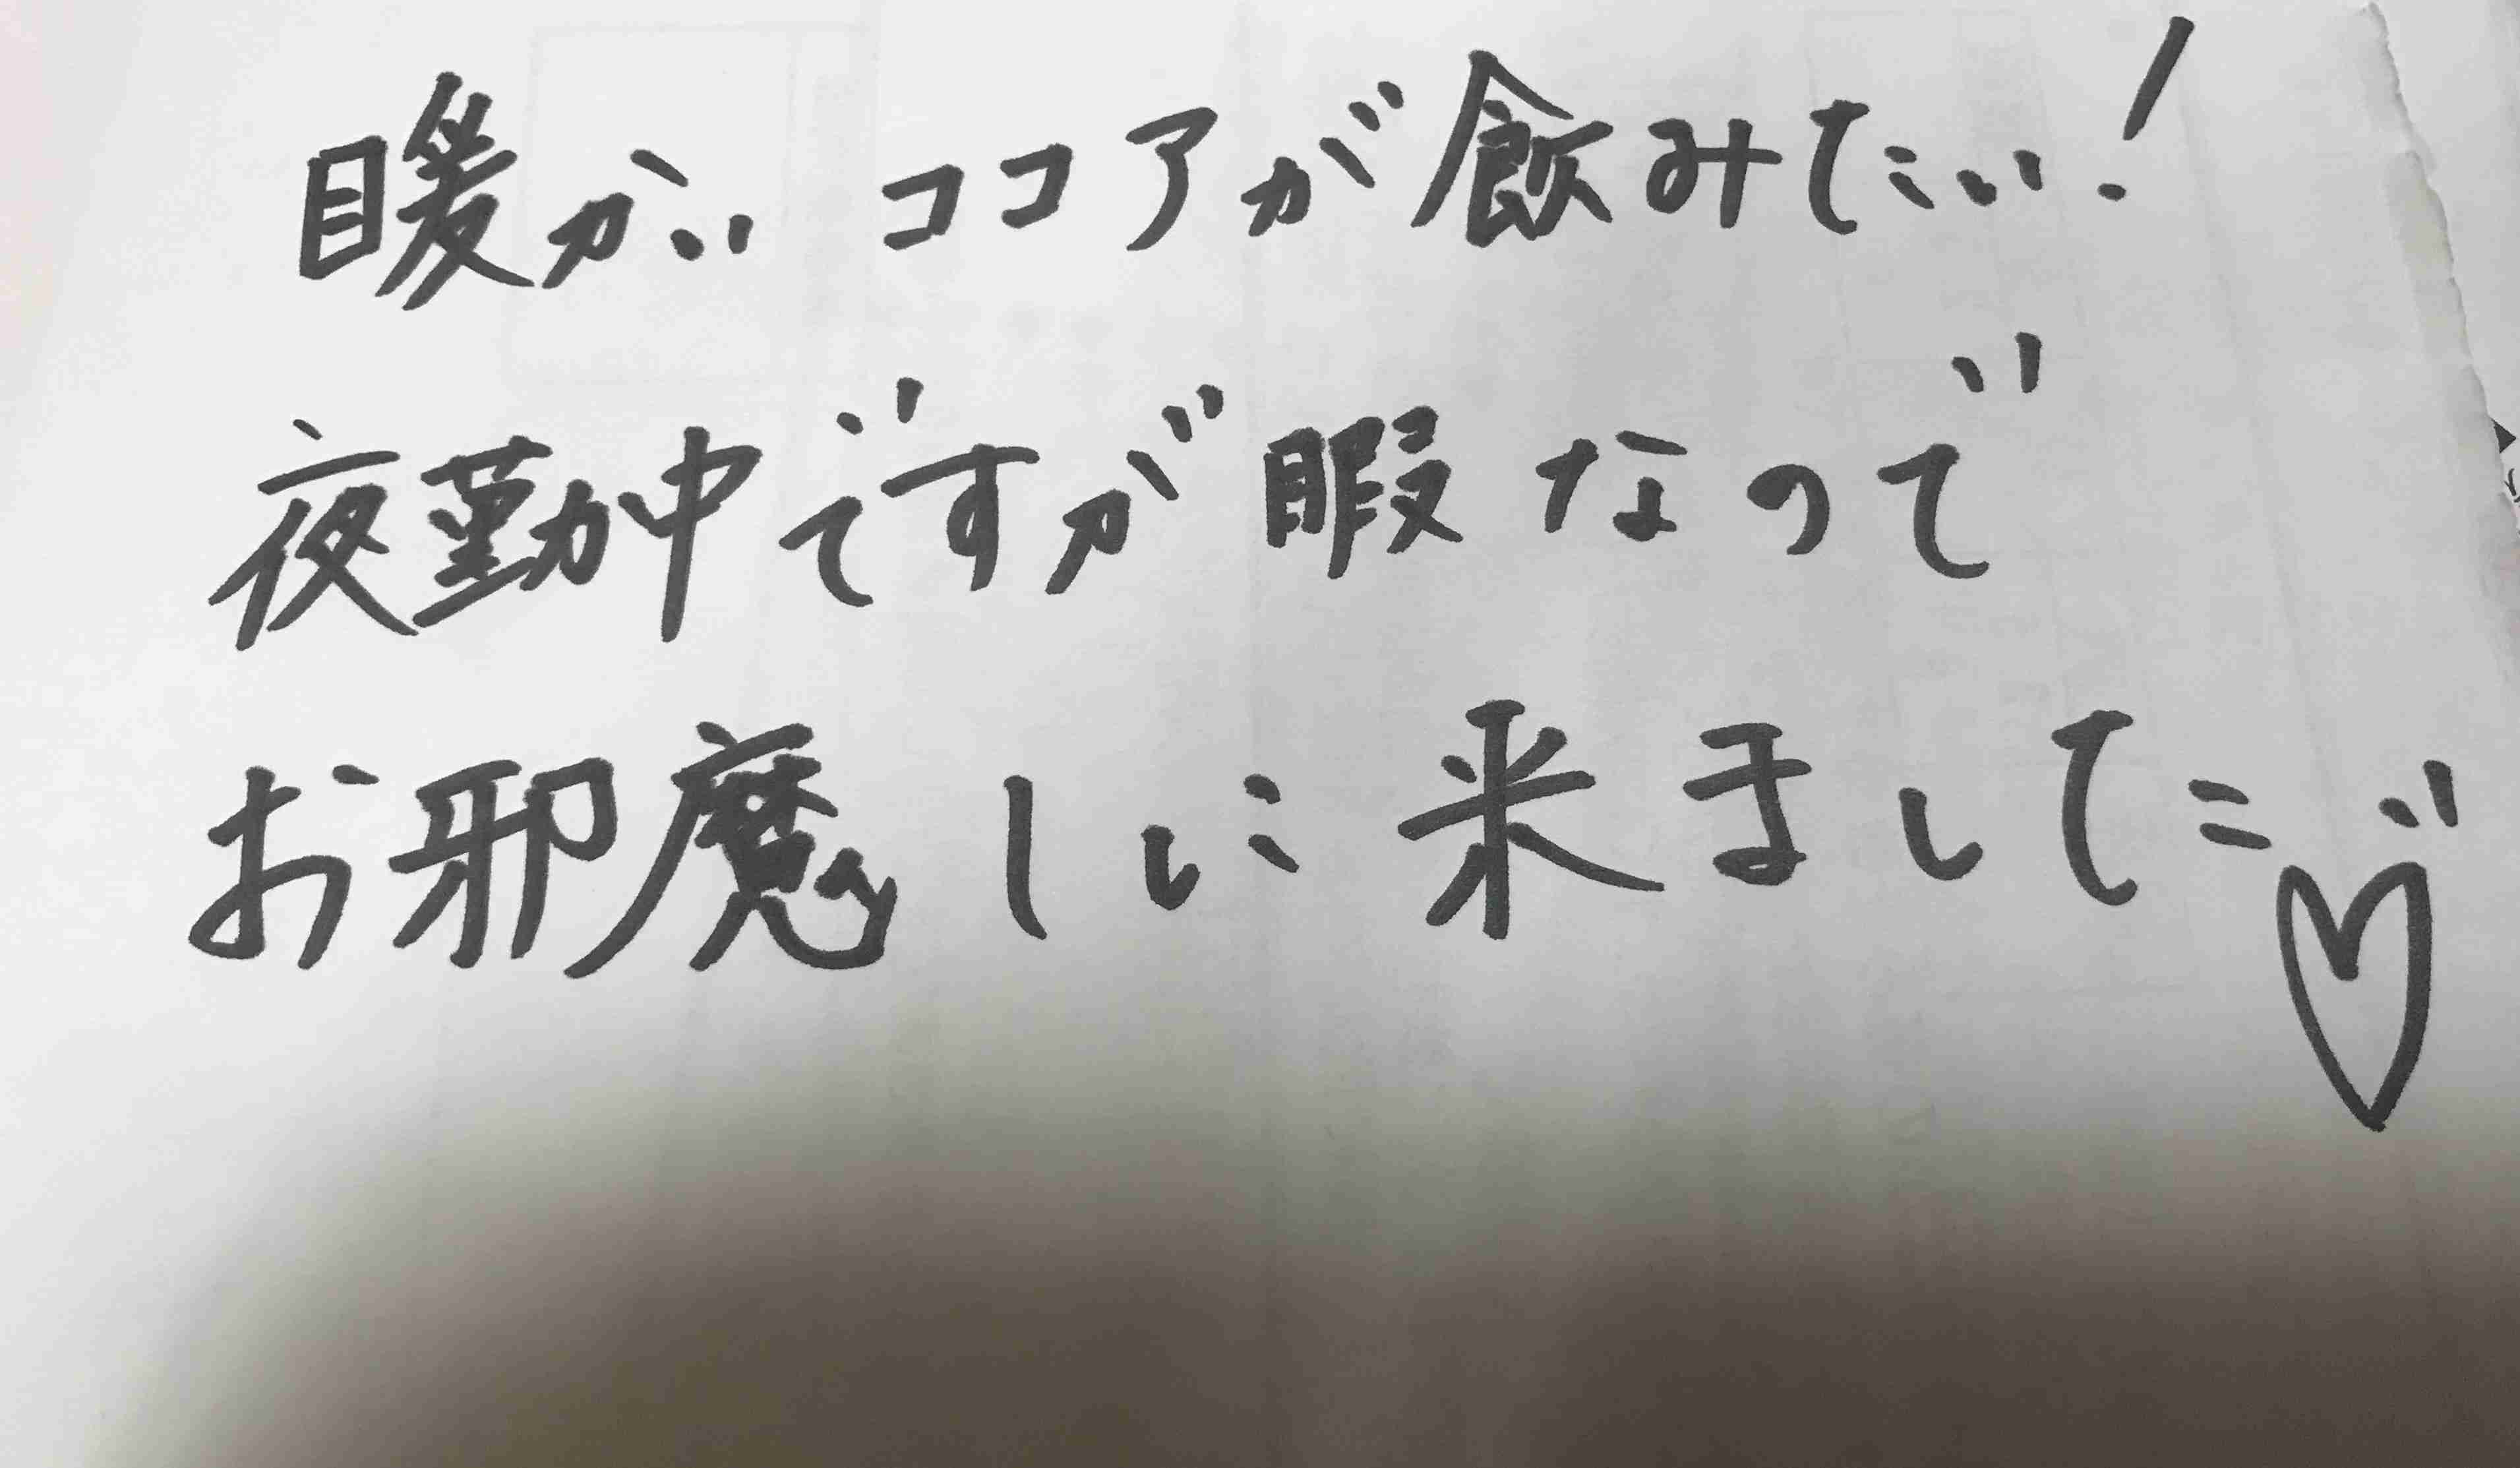 暖かいココアが飲みたい!
夜勤中ですが暇なので
お邪魔しに来ました♡